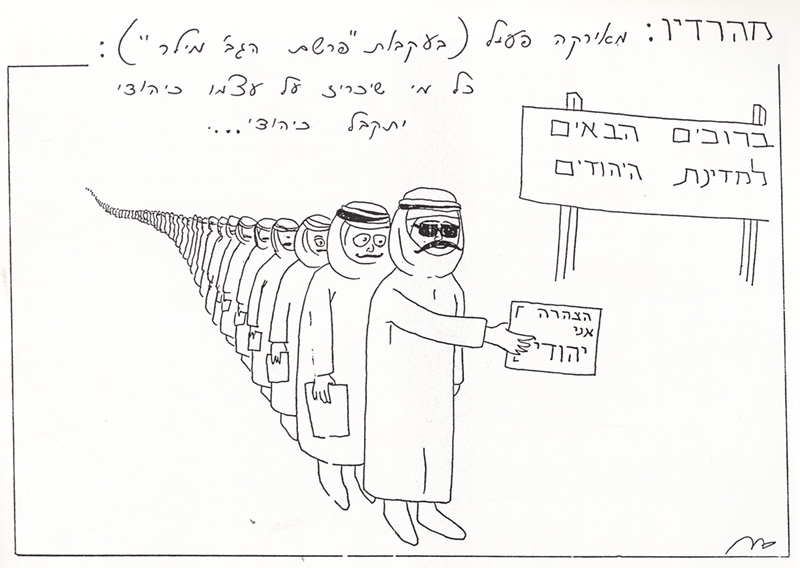 מהרדיו: מאירקה פעיל (בעקבות "פרשת הגב' מילר"):
כל מי שיכריז על עצמו כיהודי
יתקבל כיהודי....
ברוכים הבאים
למדינת היהודים
הצהרה
אני
יהודי